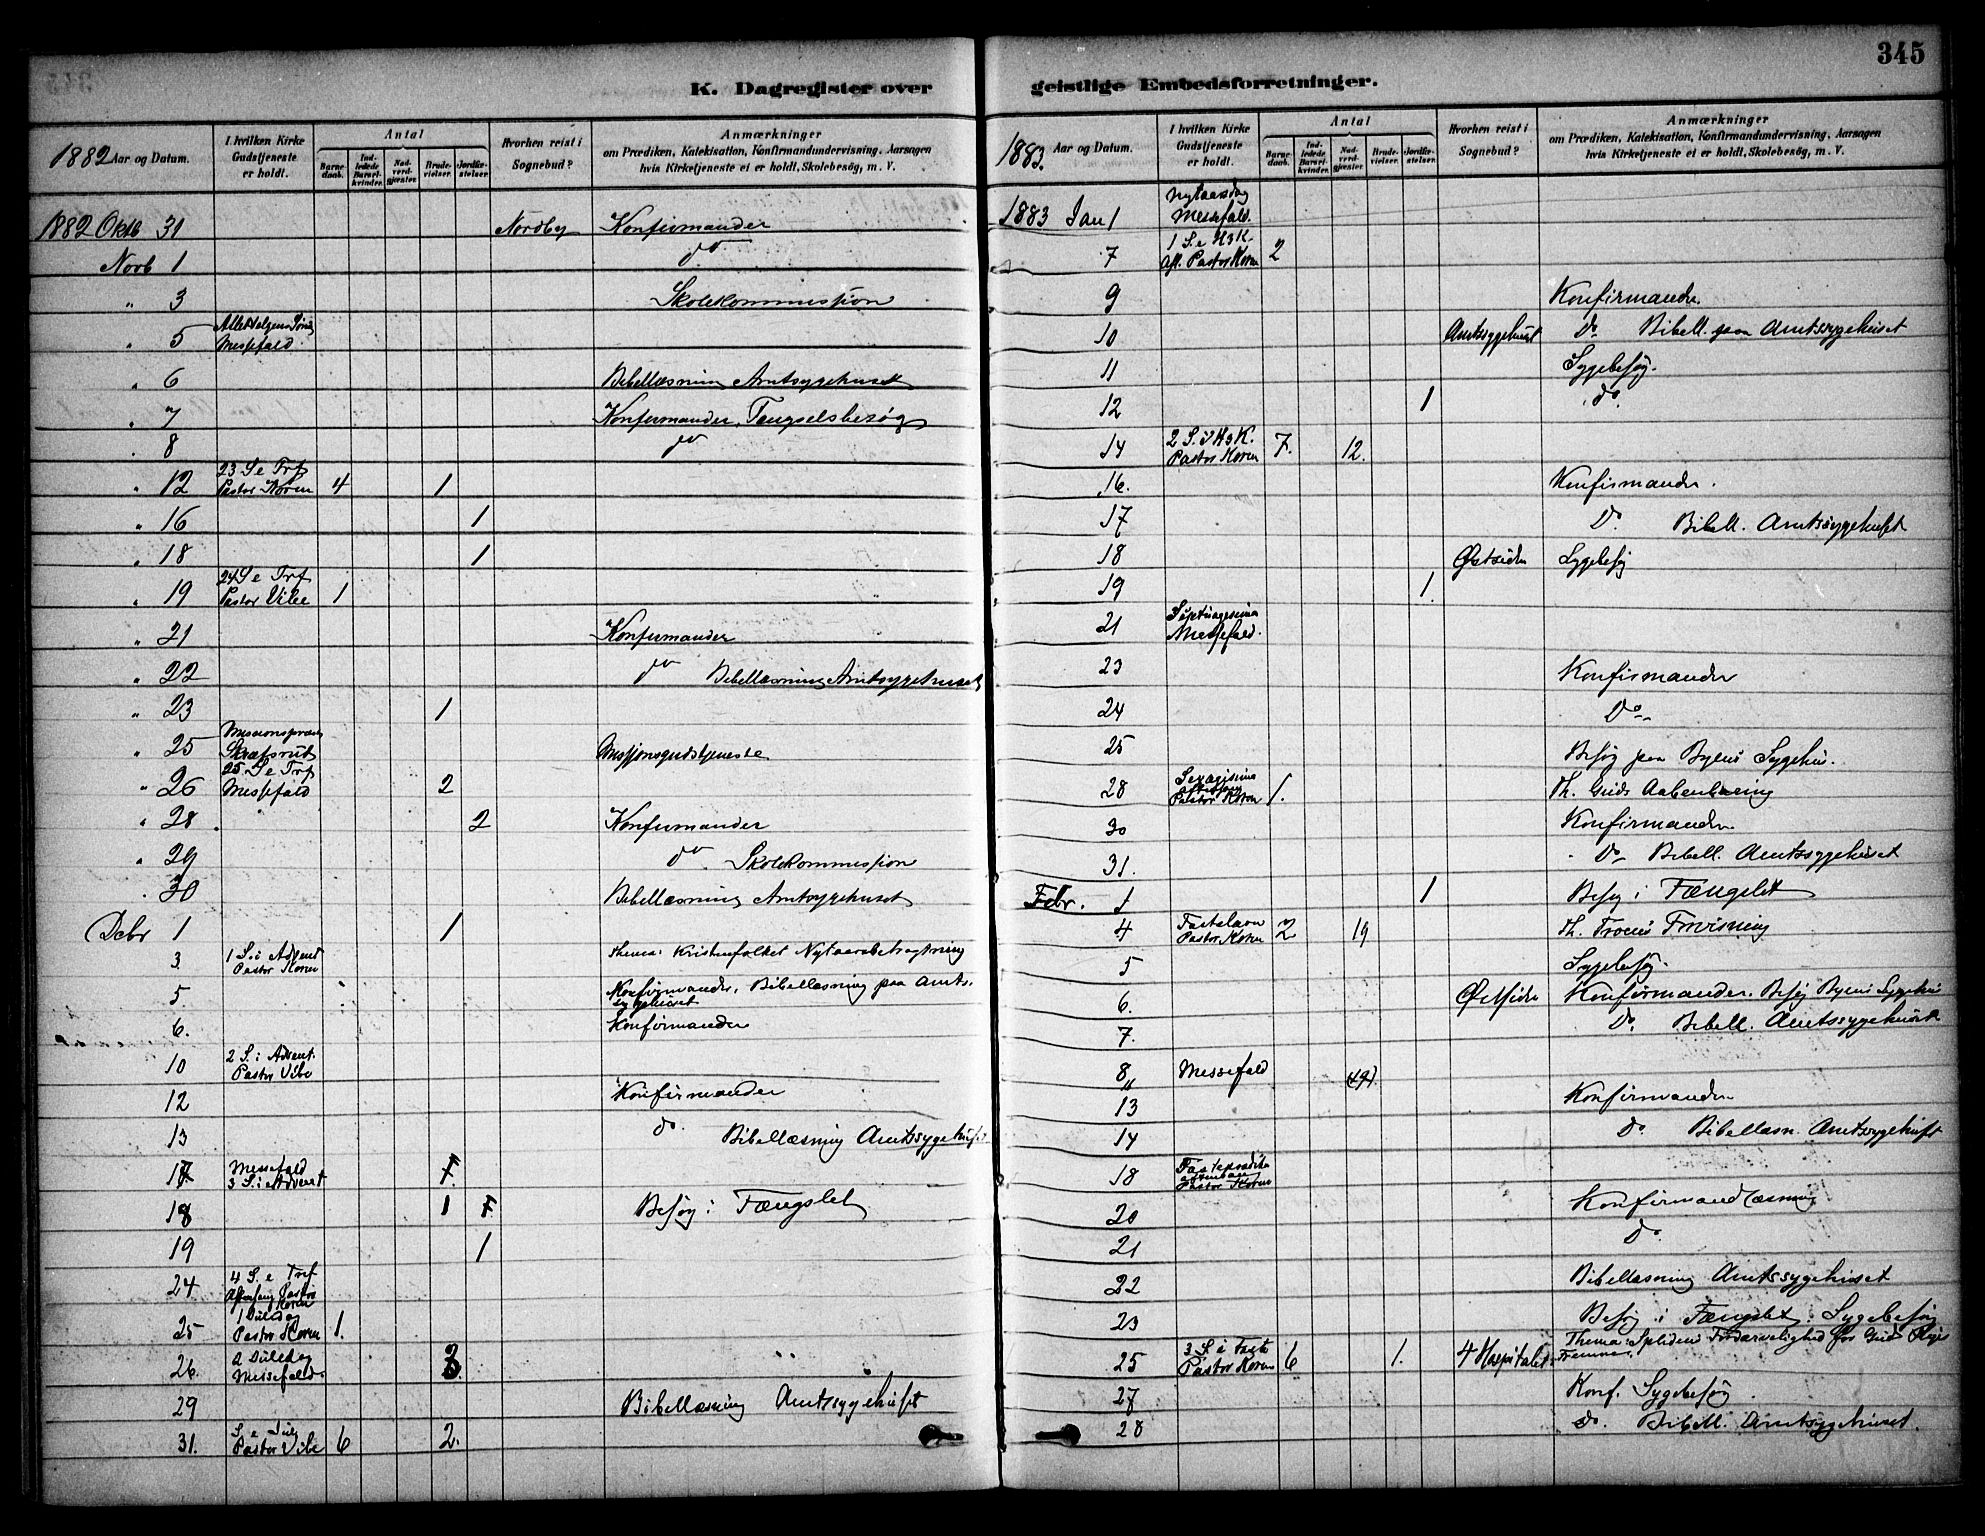 345
K. Dagregister over geistlige Embedsforretninger.
1882 Aar og Datum.
I hvilken Kirke Gudstjeneste er holdt.
Antal
Barnedaab.
Indledede Barselkvinder.
Nadverdgjæster.
Brudevielser.
Jordfæstelser.
Hvorhen reist i Sognebud?
Anmærkninger
om Prædiken, Katekisation, Konfirmandundervisning, Aarsagen
hvis Kirketjeneste ei er holdt, Skolebesög, m. V.
1882 Oktb 31 Nordby Konfirmander
Novb 1 do
" 3 Skolekommission
" 5 Allehelgens Messefald.
" 6 Bibellæsning Amtsygehuset
" 7 Konfirmander, Fængselsbesøg
" 8 do
" 12 23 S e Trf Pastor Koren 4 1
" 16 1
" 18 1
" 19 24 S e Trf Pastor Vibe 1
" 21 Konfirmander
" 22 do Bibellæsning Amtsygehuset
" 23 1
" 25 Missionspræst Skrefsrud Missjonsgudstjeneste
" 26 25 S e Trf Messefald 2
" 28 2 Konfirmander
" 29 do Skolekommission
" 30 Bibellæsning Amtsygehuset
Debr 1 1
3. 1 S. i Advent Pastor Koren Thema: Kristenfolket Nytaarsbetragtning
5 Konfirmander. Bibellæsning paa Amtssygehuset
6. Konfirmander
10 2 S. i Advent. Pastor Vibe
12 Konfirmander
13 do. Bibellæsning Amtssygehuset
17 Messefald 3 S. i Advent
18 1 Besøg i Fængslet
19 1
24 4 S. e Trf Aftensang Pastor Koren
25 1 Juledag Pastor Koren 1.
26. 2 Juledag Messefald.
29 Bibellæsning Amtssygehuset
31. S. e Jul Pastor Vibe 6 2.
1883. Aar og Datum.
I hvilken Kirke Gudstjeneste er holdt.
Antal
Barnedaab.
Indledede Barselkvinder.
Nadverdgjæster.
Brudevielser.
Jordfæstelser.
Hvorhen reist i Sognebud?
Anmærkninger
om Prædiken, Katekisation, Konfirmandundervisning, Aarsagen
hvis Kirketjeneste ei er holdt, Skolebesög, m. V.
1883 Jan 1 Nytaarsdag Messefald.
7 1 S. e H3K. Aft. Pastor Koren 2
9 Konfirmander
10 Amtssygehuset Do Bibell. paa Amtssygehuset
11 Sygebesøg.
12 1 do.
14 2 S. e H3K. Pastor Koren 7. 12.
16. Konfirmander.
17 Do Bibell. Amtssygehuset
18 Østsiden Sygebesøg
19 1.
21 Septuagesima Messefald.
23 Konfirmander
24 Do
25 Besøg paa Byens Sygehus.
28 Sexagesima aftensang Pastor Koren 1. Th. Guds Aabenbaring
30 Konfirmander
31. Do Bibell. Amtssygehuset
Febr. 1 1 Besøg i Fængslet
4 Fastelavn Pastor Koren 2 19 Th. Troens
5 Sygebesøg.
6. Østsiden Konfirmander. Besøg Byens Sygehus
7. Do. Bibell. Amtssygehuset
8 Messefald
13 Konfirmander
14 Do Bibellæsn. Amtssygehuset
18 Fasteprædiken aftensang Pastor Koren
20 Konfirmandlæsning
21 Do
22 Bibellæsning Amtssygehuset
23 Besøg i Fængslet. Sygebesøg
25 3 S. i Faste Pastor Koren 6 1. 4 Hospitalet Thema: Splidens Fordærvelighed for Guds Riges Fremme.
27 Konf. Sygebesøg
28 do. Bibell. Amtssygehuset.